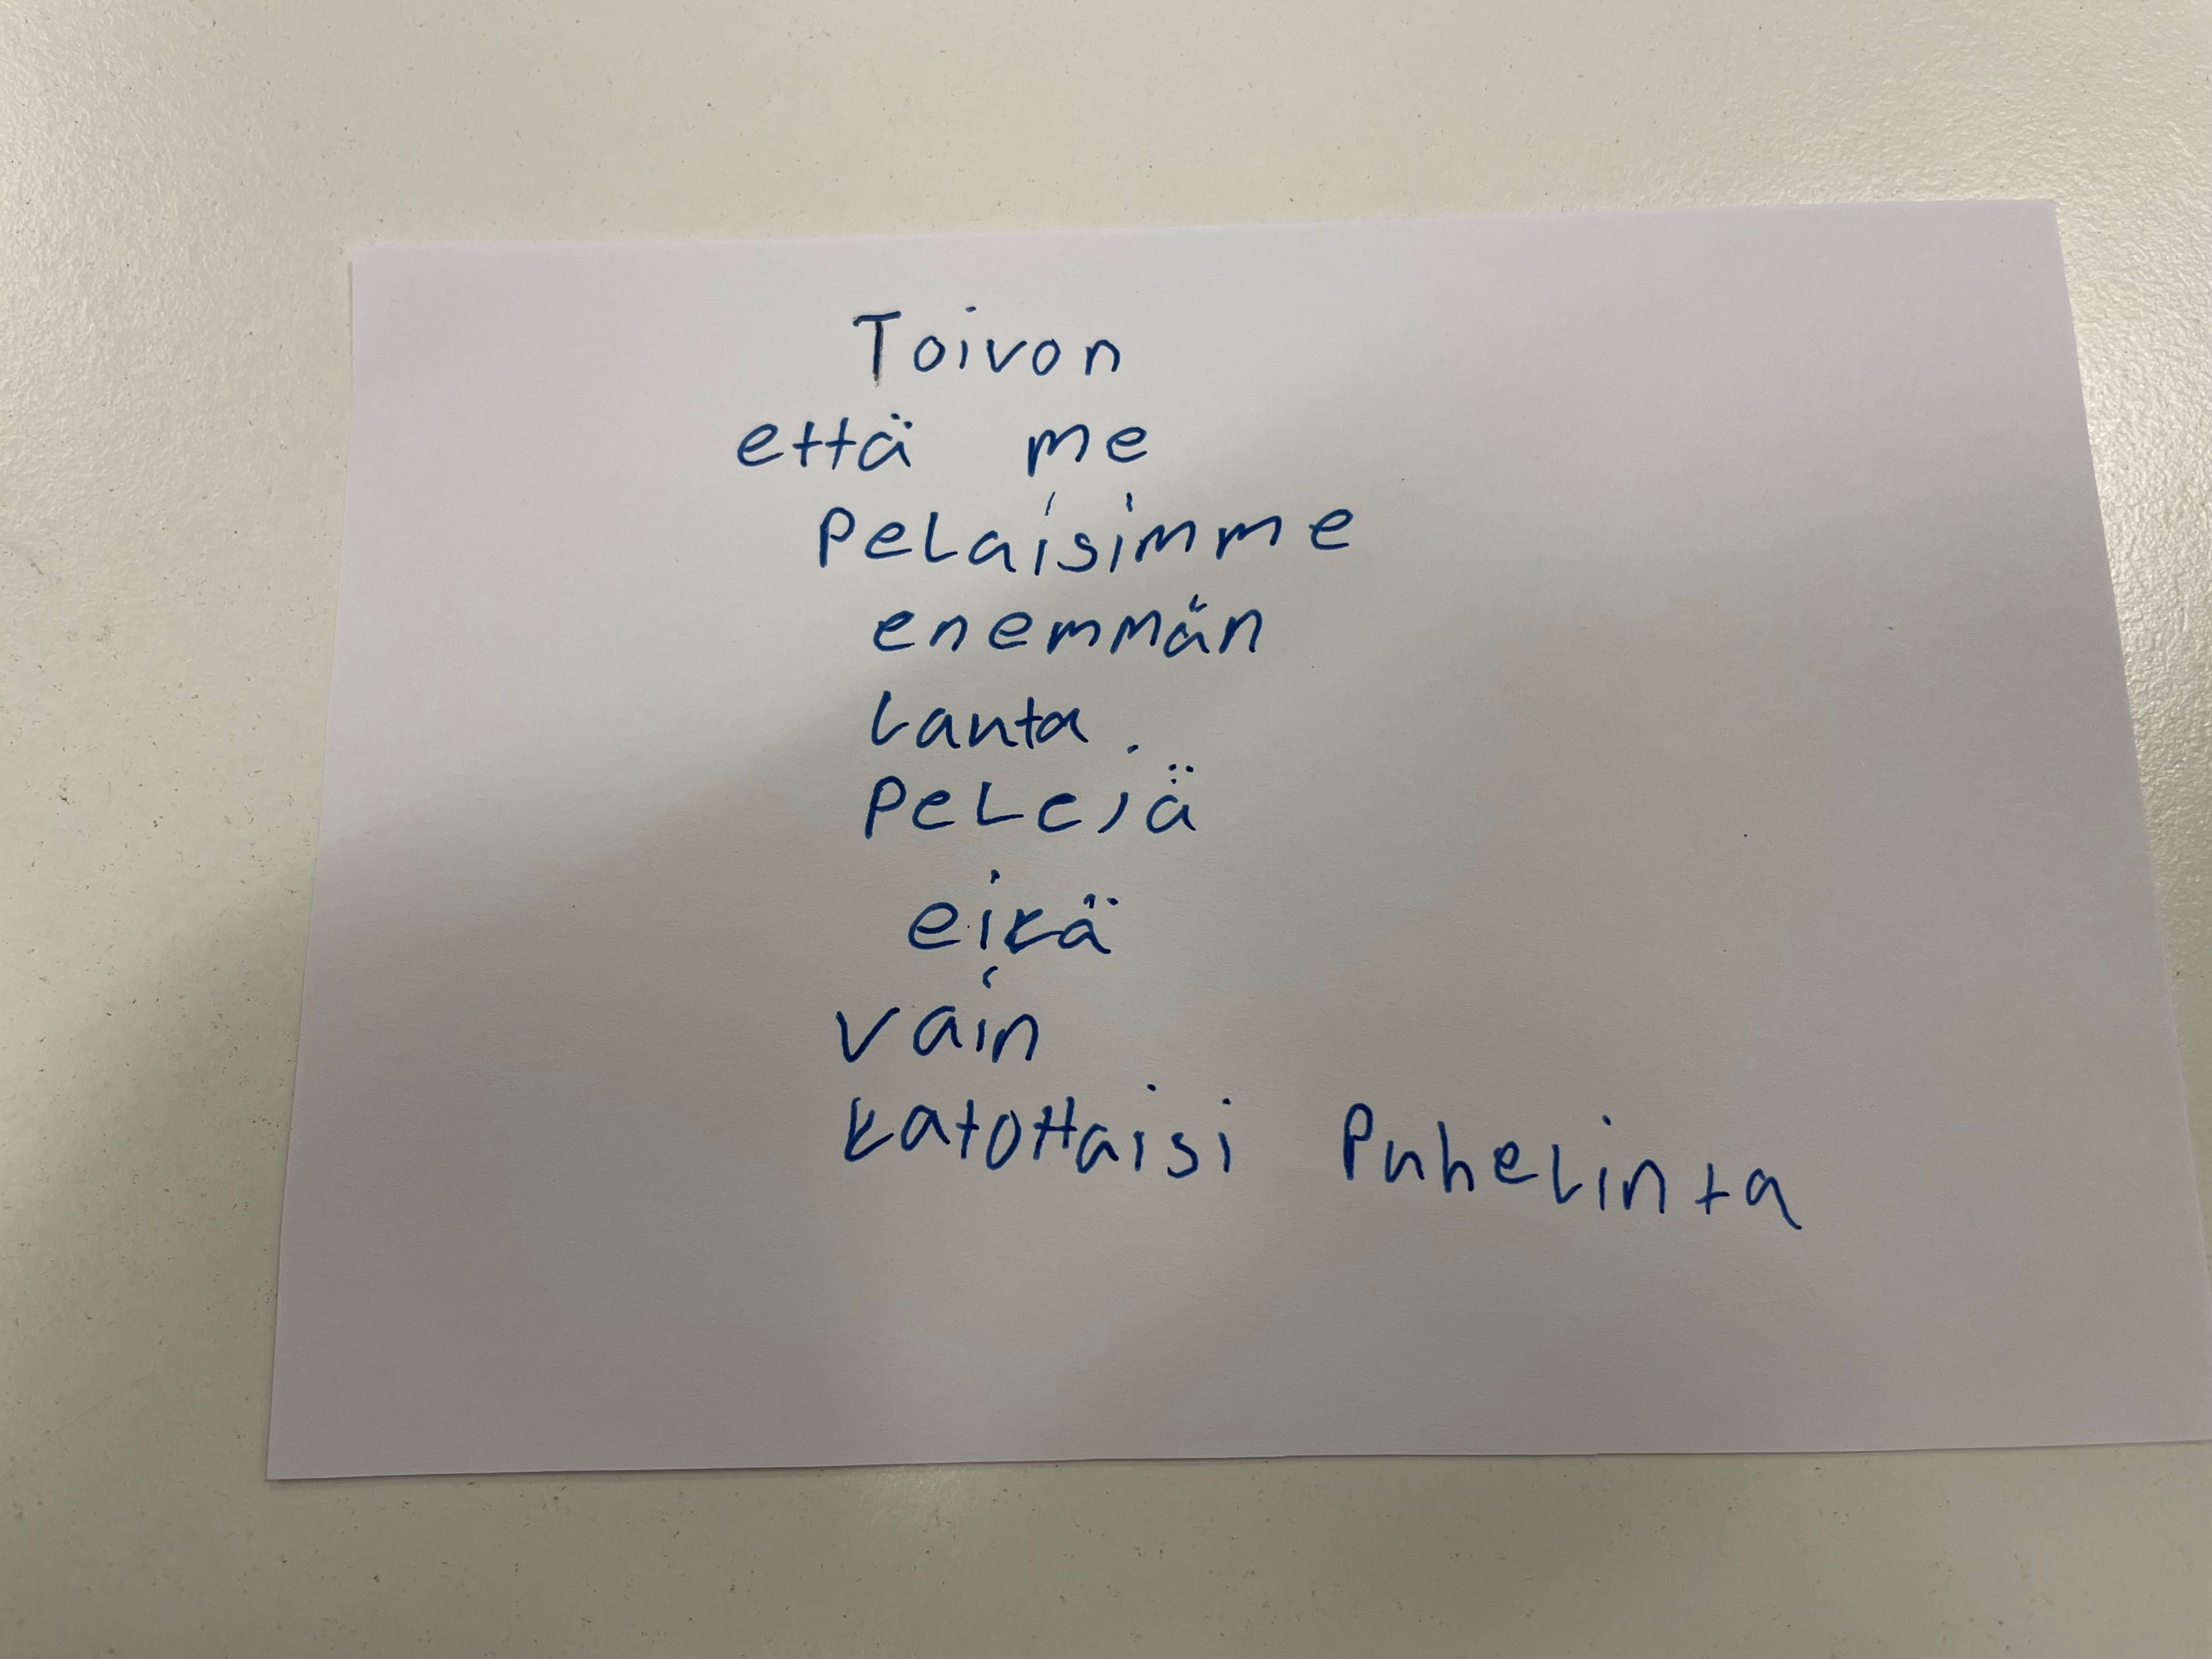 Toivon
että me
Pelaisimme
enemmän
lauta.
Pelejä
eikä
vain
katottaisi Puhelinta